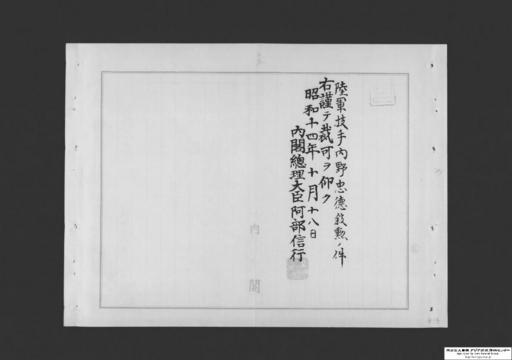 陸軍技手内野忠徳敍勲ノ件
右謹テ裁可ヲ仰ク
昭和十四年十月十八日
内閣總理大臣阿部信行
内閣